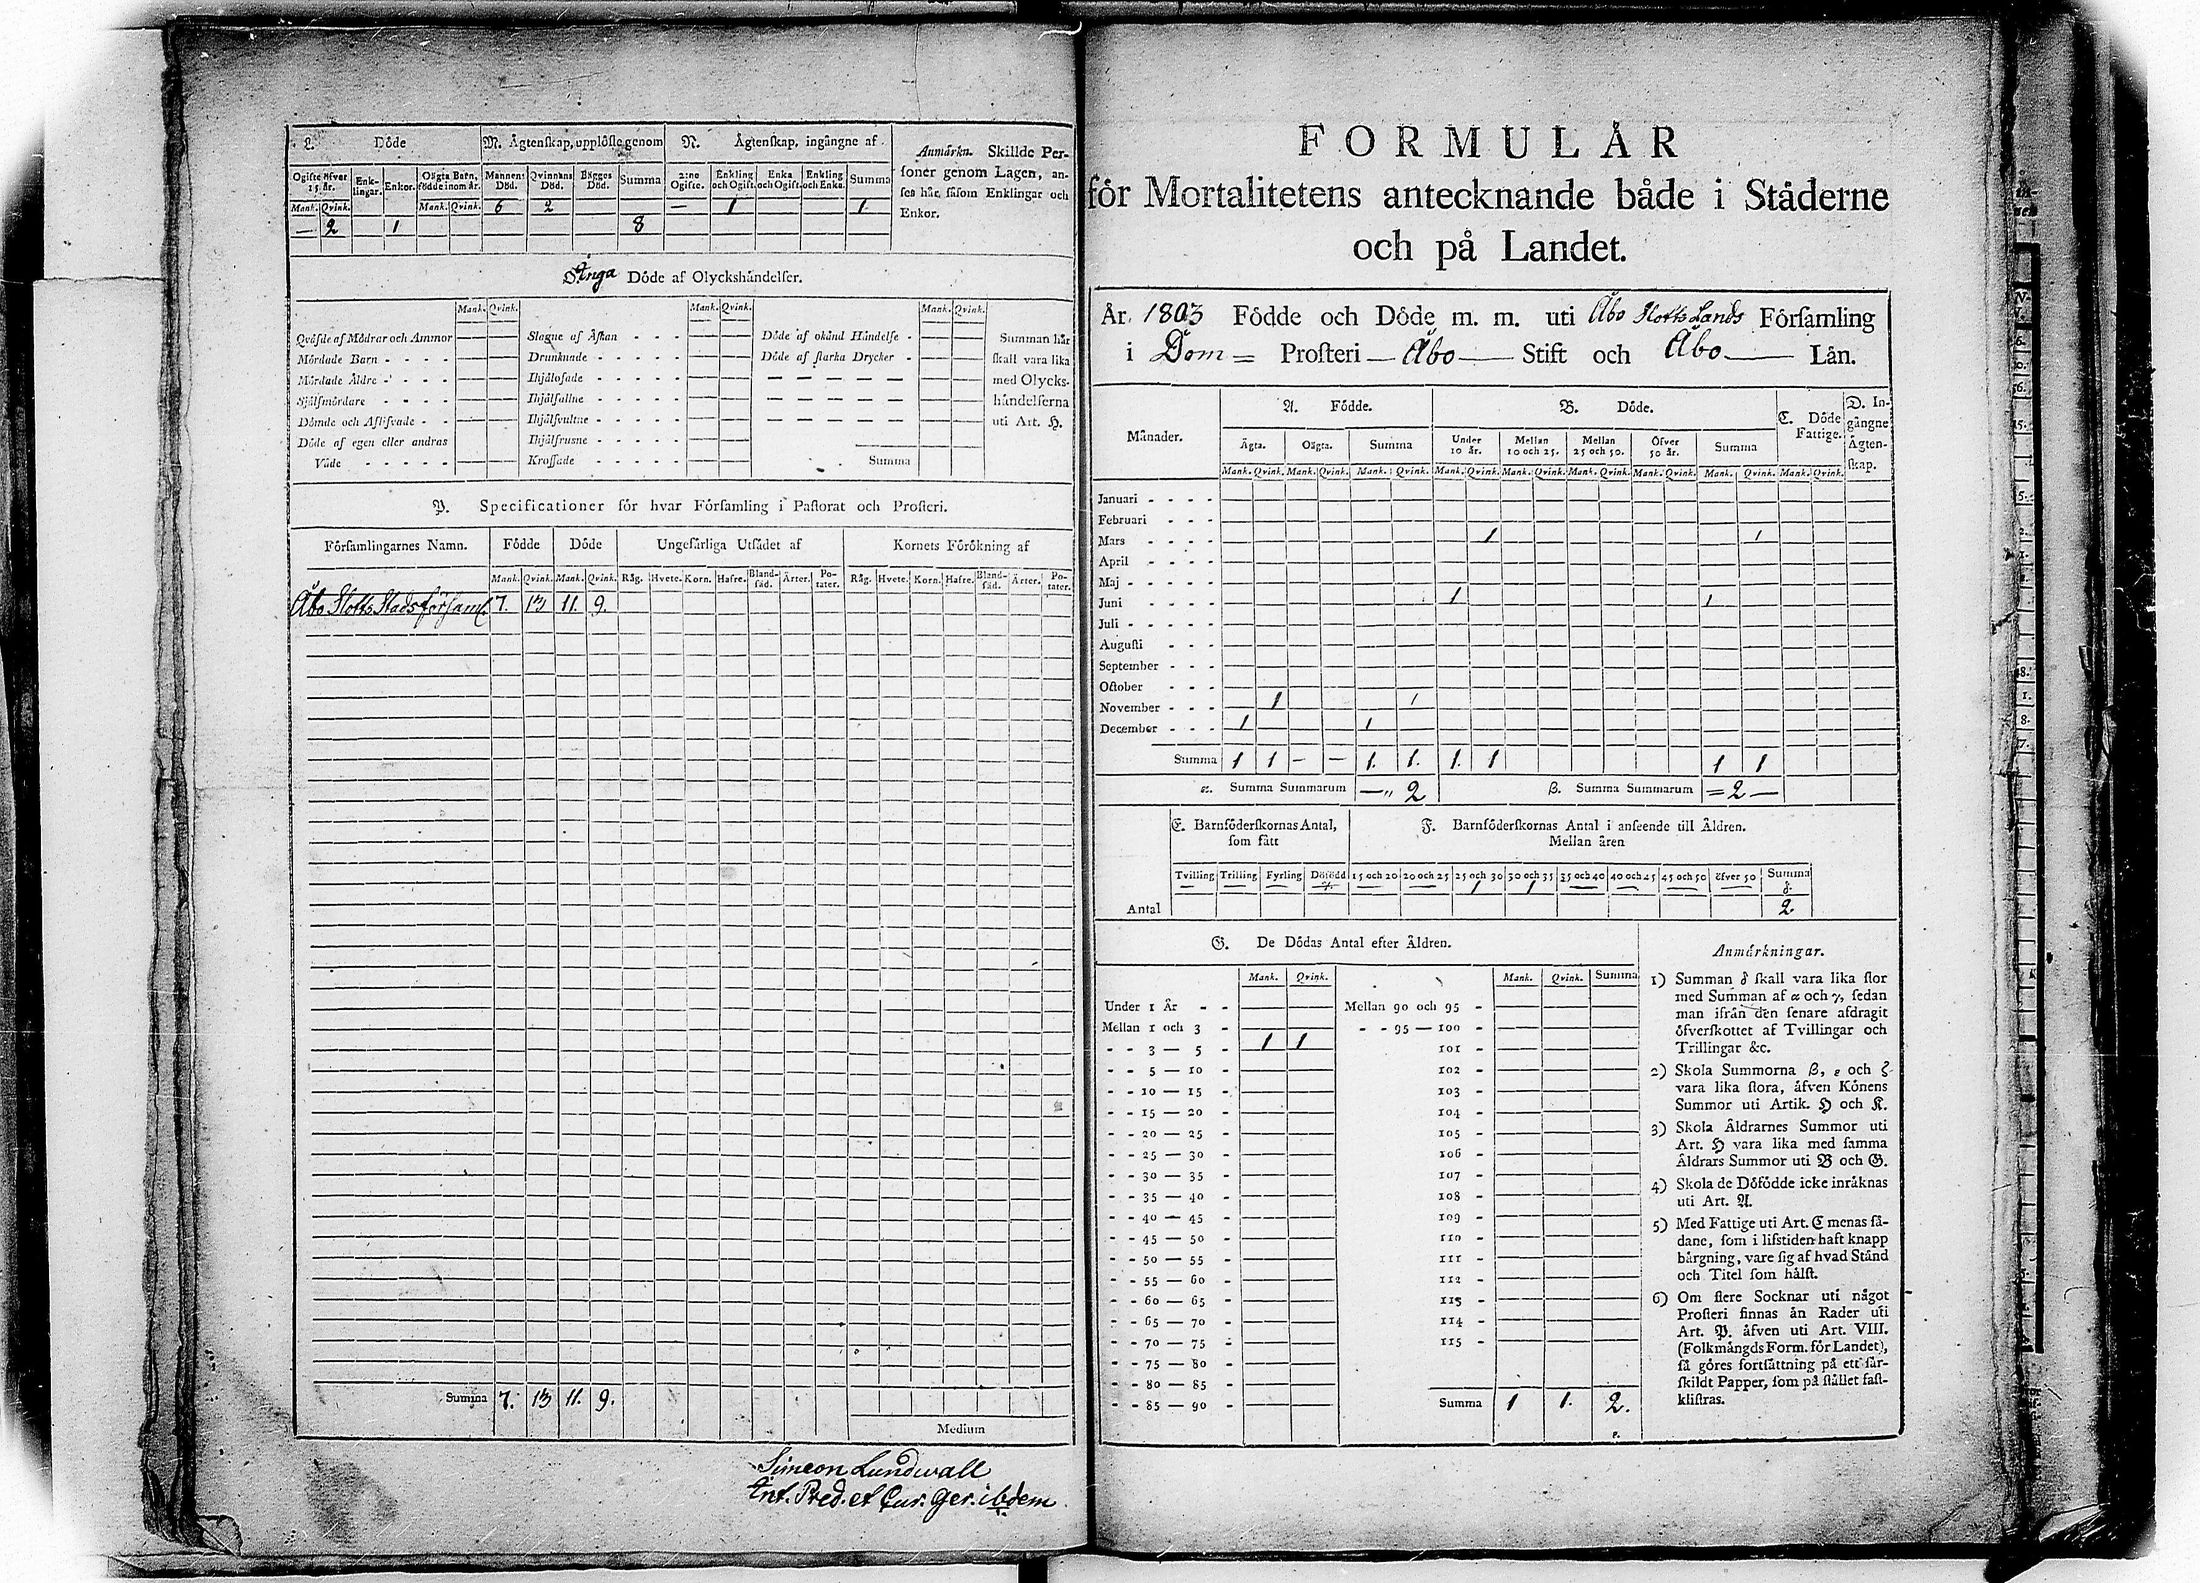 L. Döde
M. Ägtenskap, upplöste genom
N. Ägtenskap, ingångne af
Ogifte öfver 15 år. Enklingar. Enkor. Oägta Barn, födde inom år. Mannens Död. Qvinnans Död. Bägges Död. Summa 2:ne Ogifte. Enkling och Ogift. Enka och Ogift. Enkling och Enka. Summa
Mank. Qvink. Mank. Qvink. 6 2 — 1 1
— 2 1 8
Anmärkn. Skillde Per-
soner genom Lagen, an-
ses här, såsom Enklingar och
Enkor.
Inga Döde af Olyckshändelser.
Mank. Qvink. Mank. Qvink. Mank. Qvink.
Qväfde af Mödrar och Ammor Slagne af Åskan - - - Döde af okänd Händelse - Summan här
Mördade Barn - - - - Drunknade - - - - - Döde af starka Drycker - skall vara lika
Mördade Äldre - - - - Ihjälosade - - - - - — — — — — med Olycks-
Sjelfmördare - - - - Ihjälfallne - - - - - — — — — — händelserna
Dömde och Aflifvade - - Ihjälsvultne - - - - - uti Art. H.
Döde af egen eller andras Ihjälfrusne - - - - -
Våde - - - - - Krossade - - - - - Summa
P. Specificationer för hvar Församling i Pastorat och Prosteri.
Församlingarnes Namn. Födde Döde Ungefärliga Utsädet af Kornets Förökning af
Mank. Qvink. Mank. Qvink. Råg. Hvete. Korn. Hafre. Bland-säd. Ärter. Po-tater. Råg. Hvete. Korn. Hafre. Bland-säd. Ärter. Po-tater.
Åbo Slotts Stads församl. 7. 13 11. 9.
Summa 7. 13 11. 9.
Medium
Simeon Lundwall
Ant. Pred. et Cur. Ger. ibdem.
FORMULÄR
för Mortalitetens antecknande både i Städerne
och på Landet.
År 1803 Födde och Döde m. m. uti Åbo Slotts Lands Församling
i Dom = Prosteri — Åbo — Stift och Åbo — Län.
Månader. A. Födde. B. Döde. C. Döde Fattige. D. Ingångne Ägtenskap.
Ägta. Oägta. Summa Under 10 år. Mellan 10 och 25. Mellan 25 och 50. Öfver 50 år. Summa
Mank. Qvink. Mank. Qvink. Mank. Qvink. Mank. Qvink. Mank. Qvink. Mank. Qvink. Mank. Qvink. Mank. Qvink. Mank. Qvink.
Januari - - - -
Februari - - -
Mars - - - - 1 1
April - - - -
Maj - - - - -
Juni - - - - 1 1
Juli - - - - -
Augusti - - -
September - - -
October - - -
November - - - 1 1
December - - - 1 1
Summa 1 1 — — 1. 1. 1. 1 1 1
α. Summa Summarum — „ 2 β. Summa Summarum = 2 —
E. Barnföderskornas Antal, som fått
F. Barnföderskornas Antal i anseende till Åldren.
Mellan åren
Tvilling Trilling Fyrling Dödfödd 15 och 20 20 och 25 25 och 30 30 och 35 35 och 40 40 och 45 45 och 50 öfver 50 Summa
— — — γ. — — 1 1 — — — — δ.
Antal 2.
G. De Dödas Antal efter Åldren.
Mank. Qvink. Mank. Qvink. Summa
Under 1 År - - Mellan 90 och 95 -
Mellan 1 och 3 - - - 95 — 100 -
- - 3 — 5 - 1 1 101 -
- - 5 — 10 - 102 -
- - 10 — 15 - 103 -
- - 15 — 20 - 104 -
- - 20 — 25 - 105 -
- - 25 — 30 - 106 -
- - 30 — 35 - 107 -
- - 35 — 40 - 108 -
- - 40 — 45 - 109 -
- - 45 — 50 - 110 -
- - 50 — 55 - 111 -
- - 55 — 60 - 112 -
- - 60 — 65 - 113 -
- - 65 — 70 - 114 -
- - 70 — 75 - 115 -
- - 75 — 80 -
- - 80 — 85 -
- - 85 — 90 - Summa 1 1. 2.
ε.
Anmärkningar.
1) Summan δ skall vara lika stor
med Summan af α och γ, sedan
man ifrån den senare afdragit
öfverskottet af Tvillingar och
Trillingar &c.
2) Skola Summorna β, ε och ζ
vara lika stora, äfven Könens
Summor uti Artik. H och K.
3) Skola Åldrarnes Summor uti
Art. H vara lika med samma
Åldrars Summor uti B och G.
4) Skola de Dödfödde icke inräknas
uti Art. A.
5) Med Fattige uti Art. C menas så-
dane, som i lifstiden haft knapp
bärgning, vare sig af hvad Stånd
och Titel som hälst.
6) Om flere Socknar uti något
Prosteri finnas än Rader uti
Art. P. äfven uti Art. VIII.
(Folkmängds Form. för Landet),
så göres fortsättning på ett sär-
skildt Papper, som på stället fast-
klistras.